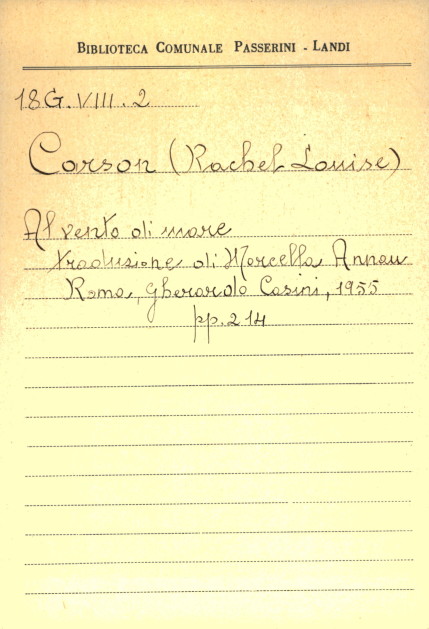 BIBLIOTECA COMUNALE PASSERINI - LANDI
18G.VIII.2
Carson (Rachel Louise)
Al vento di mare
traduzione di Marcella Annau
Roma, Gherardo Casini, 1955
pp. 214